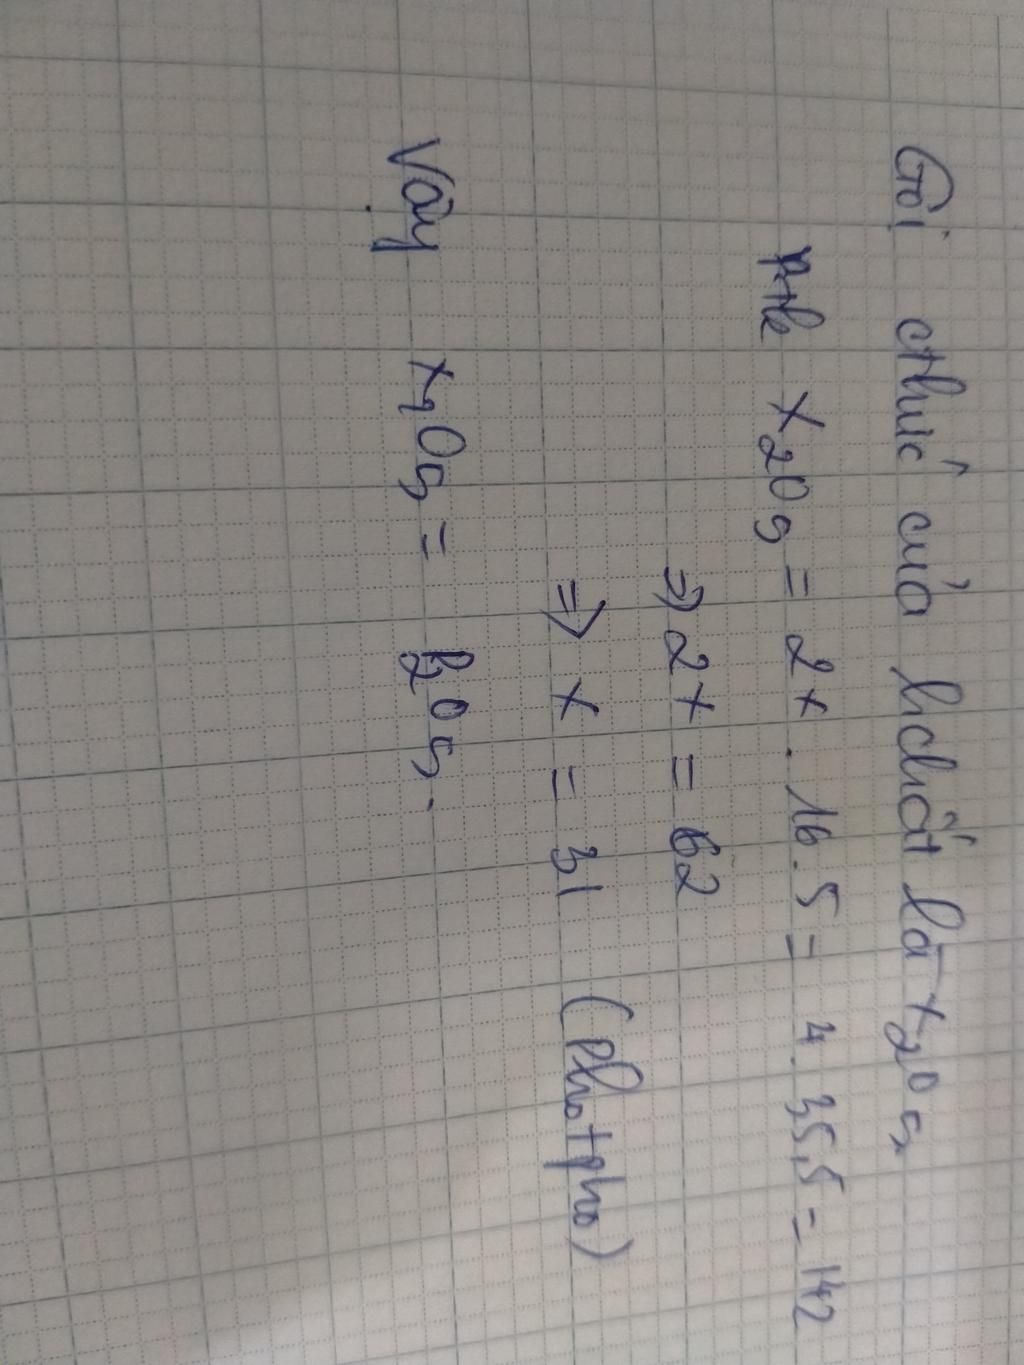 Gọi cthức của hchất là x2O5
ptk x2O5 = 2x . 16.5 = 4 . 35,5 = 142
=> 2x = 62
=> x = 31 (photpho)
Vậy x2O5 = P2O5.